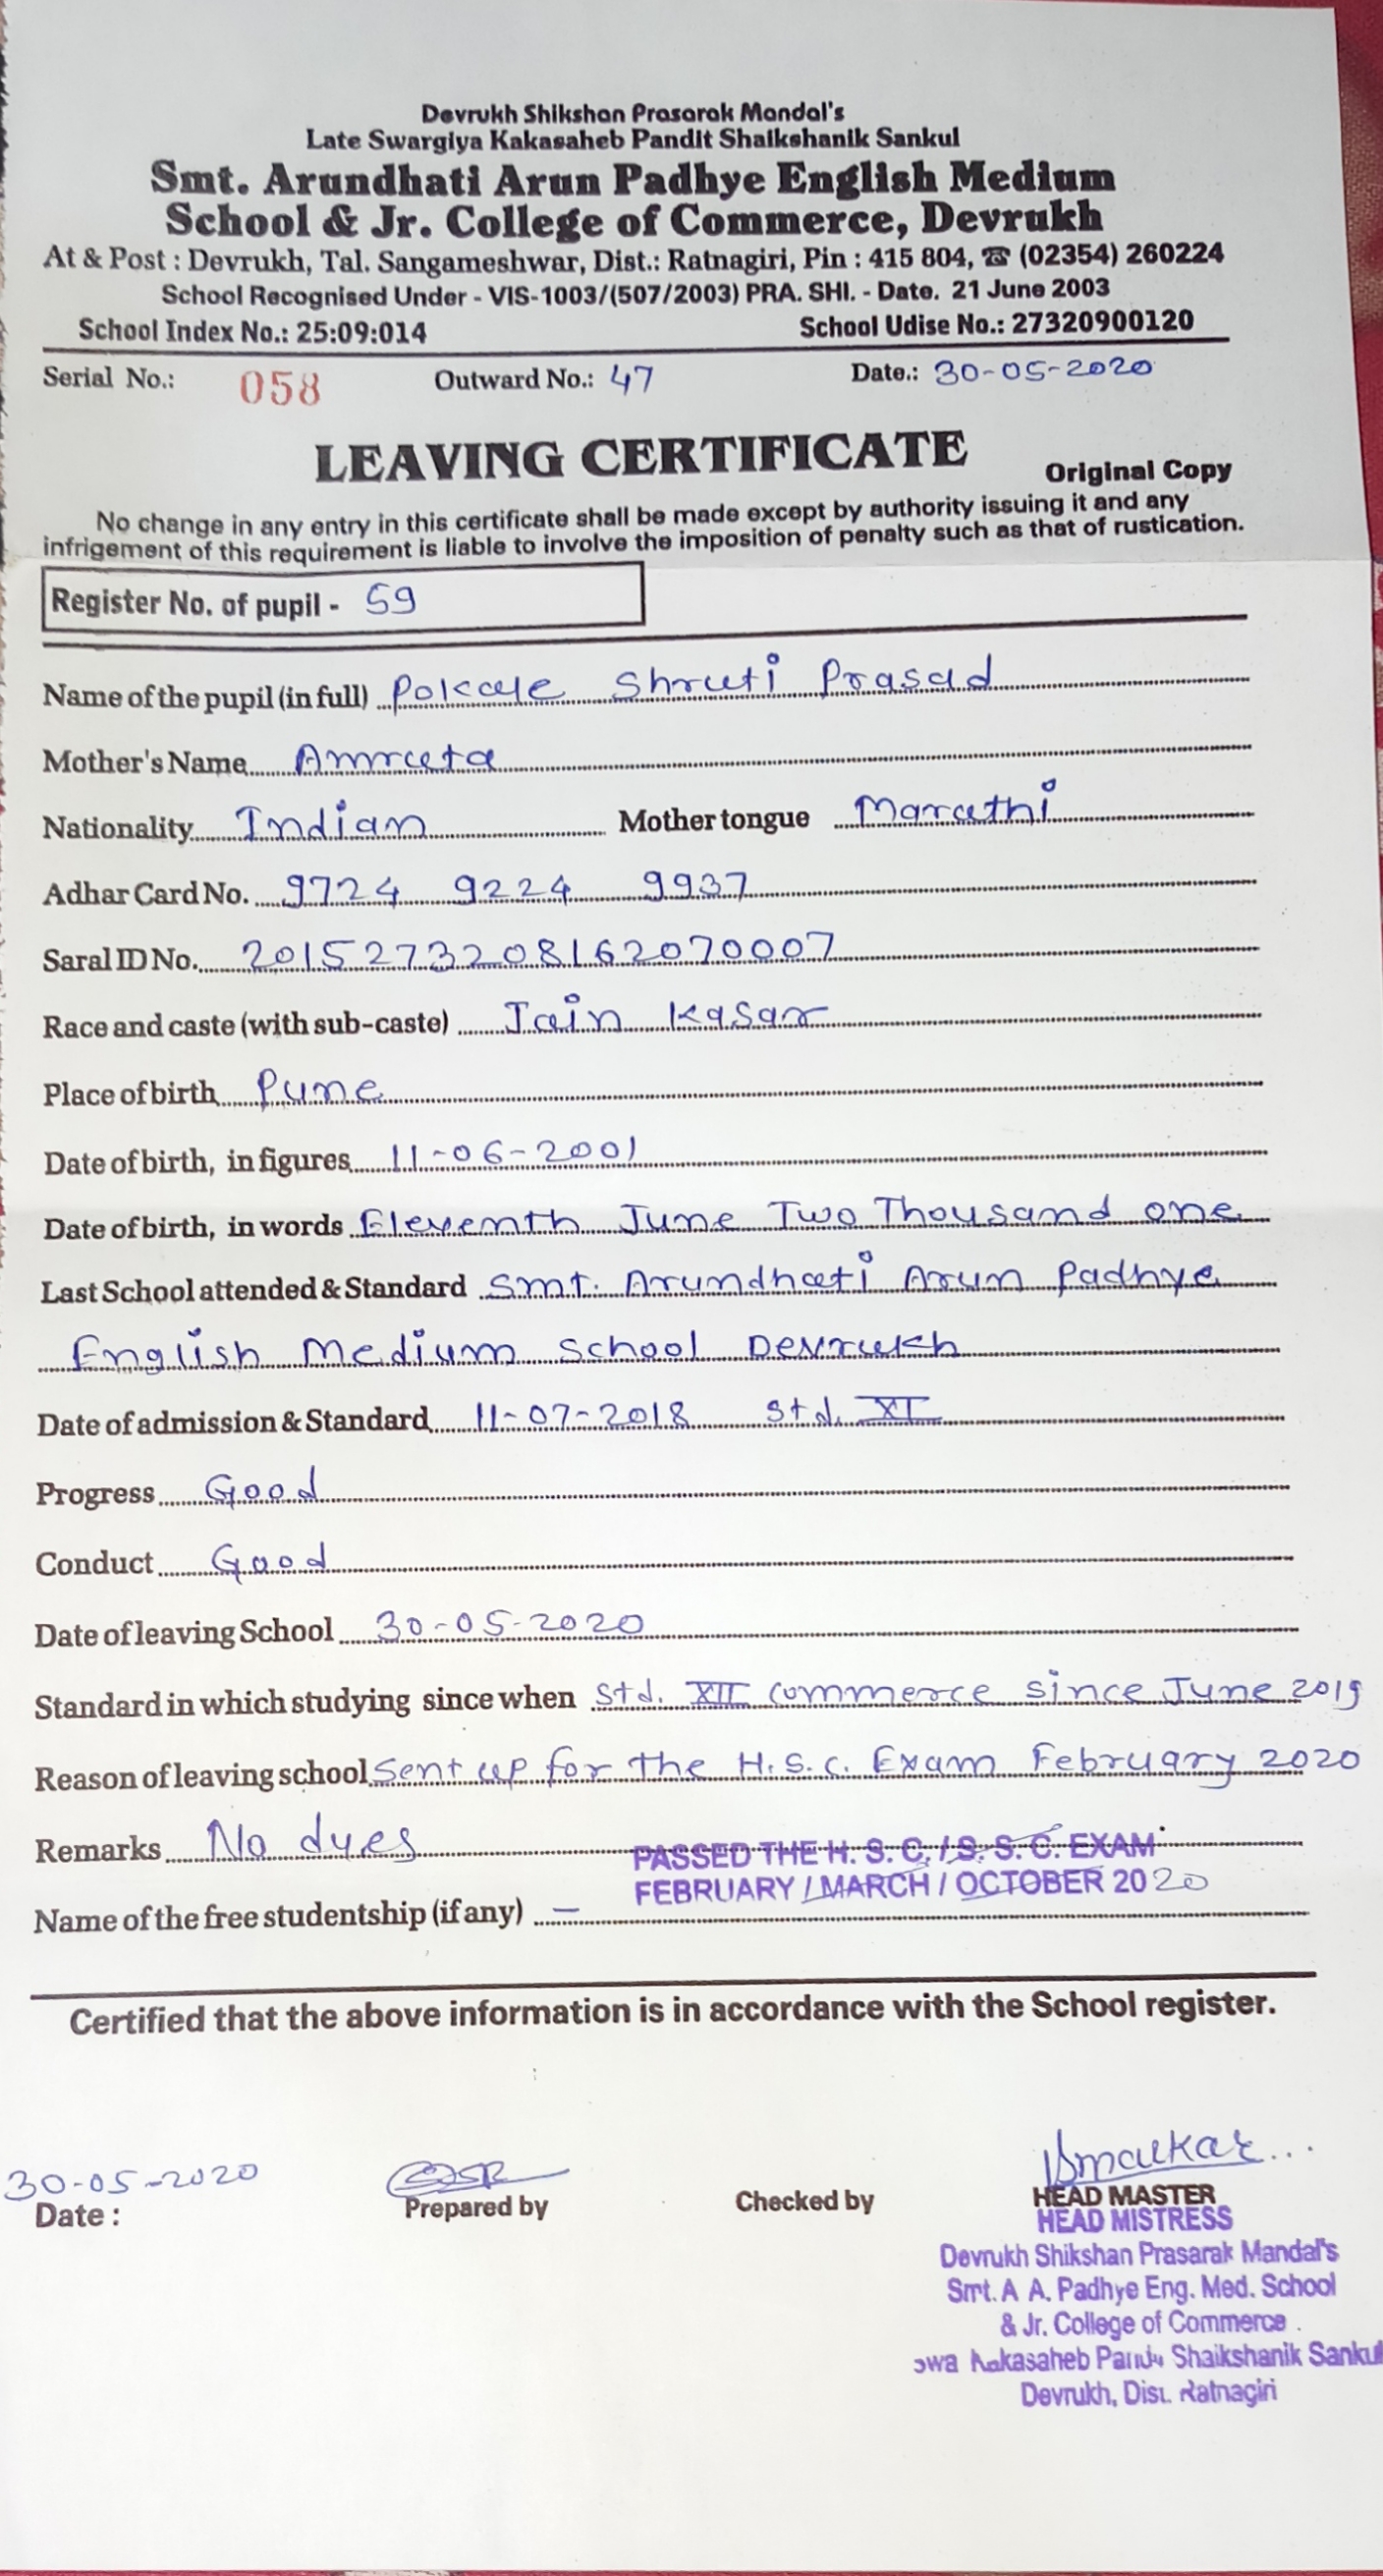 Devrukh Shikshan Prasarak Mandal's
Late Swargiya Kakasaheb Pandit Shaikshanik Sankul
Smt. Arundhati Arun Padhye English Medium
School & Jr. College of Commerce, Devrukh
At & Post : Devrukh, Tal. Sangameshwar, Dist.: Ratnagiri, Pin : 415 804, ☎ (02354) 260224
School Recognised Under - VIS-1003/(507/2003) PRA. SHI. - Date. 21 June 2003
School Index No.: 25:09:014 School Udise No.: 27320900120
Serial No.: 058 Outward No.: 47 Date.: 30-05-2020
LEAVING CERTIFICATE Original Copy
No change in any entry in this certificate shall be made except by authority issuing it and any
infrigement of this requirement is liable to involve the imposition of penalty such as that of rustication.
Register No. of pupil - 59
Name of the pupil (in full) Pokale Shruti Prasad
Mother's Name Amruta
Nationality Indian Mother tongue Marathi
Adhar Card No. 9724 9224 9937
Saral ID No. 2015273208162070007
Race and caste (with sub-caste) Jain Kasar
Place of birth Pune
Date of birth, in figures 11-06-2001
Date of birth, in words Eleventh June Two Thousand one
Last School attended & Standard Smt. Arundhati Arun Padhye
English Medium School Devrukh
Date of admission & Standard 11-07-2018 Std. XI
Progress Good
Conduct Good
Date of leaving School 30-05-2020
Standard in which studying since when Std. XII commerce since June 2019
Reason of leaving school Sent up for the H.S.C. Exam February 2020
Remarks No dyes
PASSED THE H. S. C. / S. S. C. EXAM
FEBRUARY / MARCH / OCTOBER 2020
Name of the free studentship (if any) —
Certified that the above information is in accordance with the School register.
30-05-2020
Date : Prepared by Checked by HEAD MASTER
HEAD MISTRESS
Devrukh Shikshan Prasarak Mandal's
Smt. A A. Padhye Eng. Med. School
& Jr. College of Commerce
Kakasaheb Shaikshanik Sankul
Devrukh, Dist. Ratnagiri